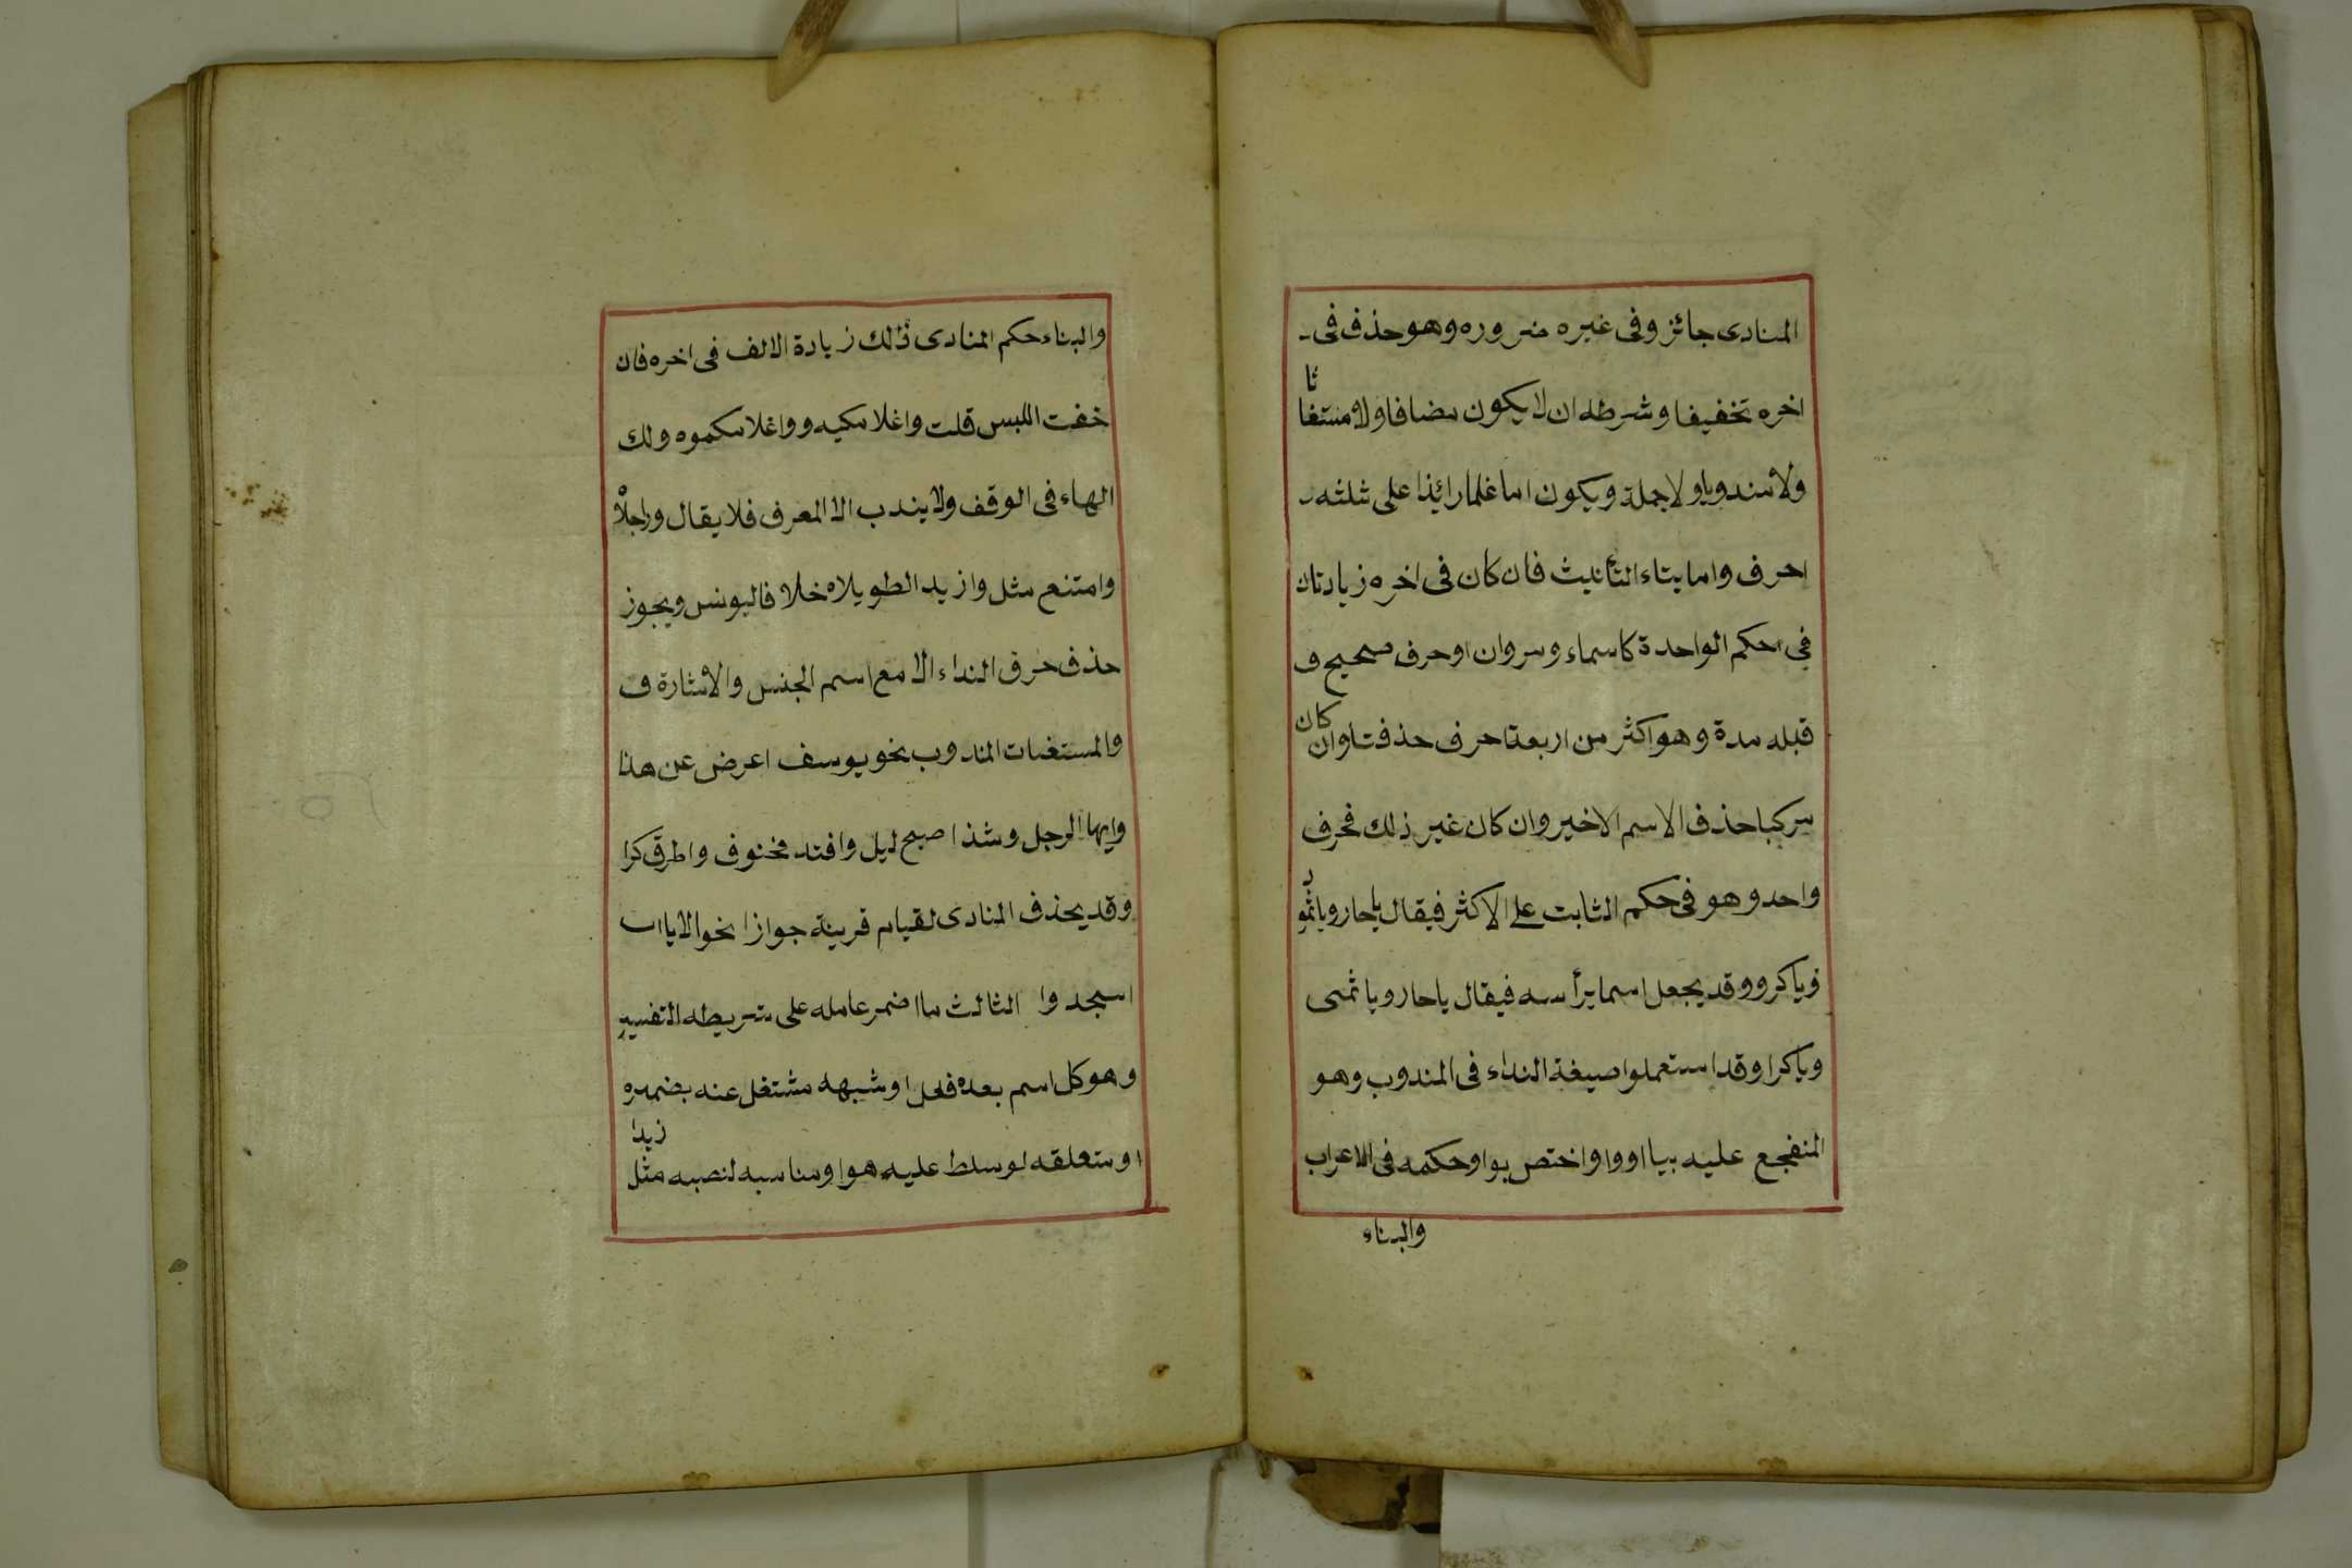 المنادى جائز وفى غيره ضروره وهو حذف فى
اخره تخفيفا وشرطه ان لا يكون مضافا ولا مستغاثا
ولا مندوبا ولا جملة ويكون اما علما زائدا على ثلثه
احرف واما بتاء التأنيث فان كان فى اخره زيادتان
فى حكم الواحدة كاسماء ومروان او حرف صحيح و
قبله مدة وهو اكثر من اربعة احرف حذفتا وان كان
مركبا حذف الاسم الاخير وان كان غير ذلك فحرف
واحد وهو فى حكم الثابت على الاكثر فيقال يا حار ويا ثمو
ويا كرو وقد يجعل اسما برأسه فيقال يا حار ويا ثمى
ويا كرا وقد استعملوا صيغة النداء فى المندوب وهو
المتفجع عليه بيا او وا واختص بوا وحكمه فى الاعراب
والبناء
والبناء حكم المنادى ذلك زيادة الالف فى اخره فان
خفت اللبس قلت واغلامكيه وواغلامكموه ولك
الهاء فى الوقف ولا يندب الا المعرف فلا يقال وراجلاه
وامتنع مثل وازيد الطويلاه خلافا ليونس ويجوز
حذف حرف النداء الا مع اسم الجنس والاشارة و
والمستغاث المندوب نحو يوسف اعرض عن هذا
وايها الرجل وشذ اصبح ليل وافتد مخنوق واطرق كرا
وقد يحذف المنادى لقيام قرينة جوازا نحو الا يا ا
اسجدوا الثالث ما اضمر عامله على شريطه التفسير
وهو كل اسم بعده فعل او شبهه مشتغل عنه بضميره
او متعلقه لو سلط عليه هو او مناسبه لنصبه مثل زيدا